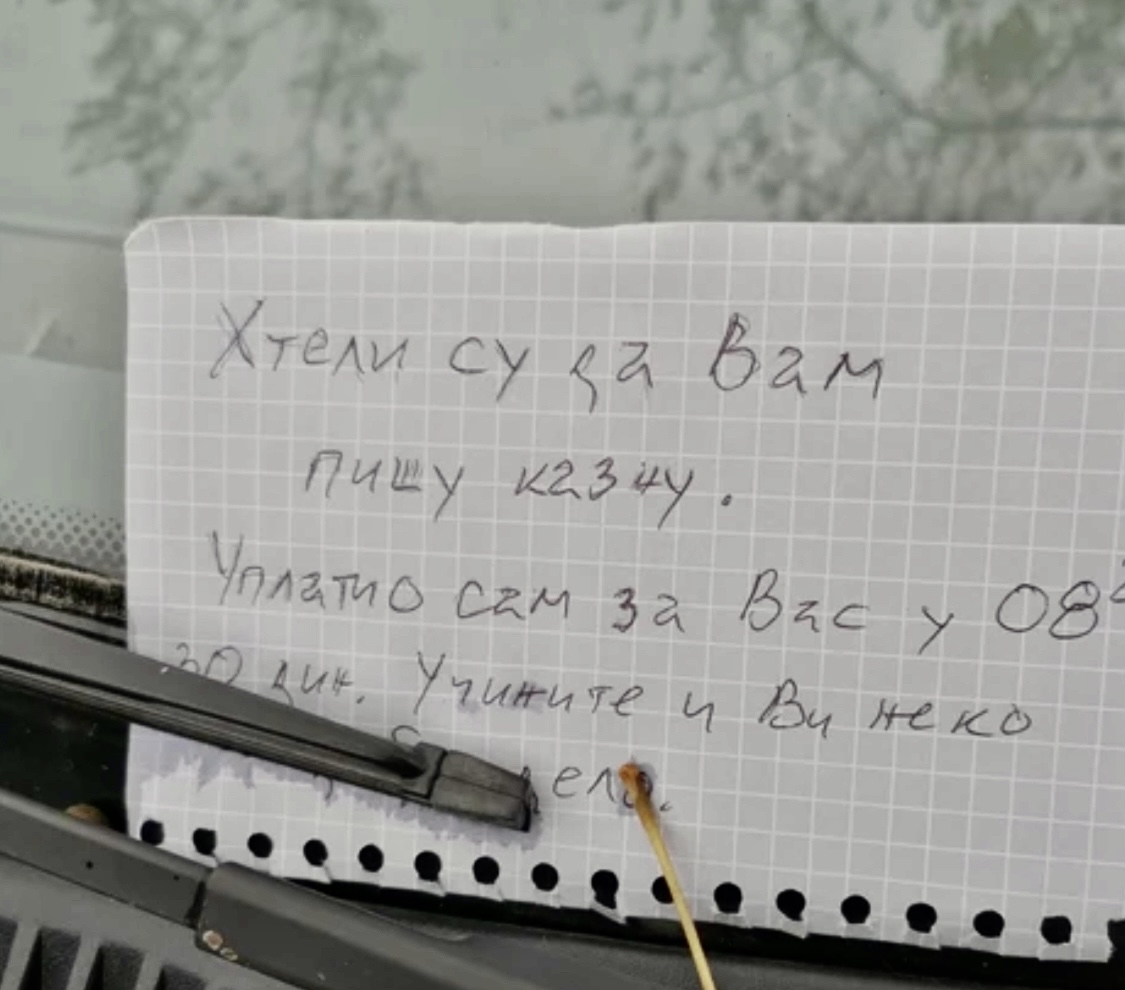 Хтели су да Вам
пишу казну.
Уплатио сам за Вас у 08
30 дин. Учините и Ви неко
дело.